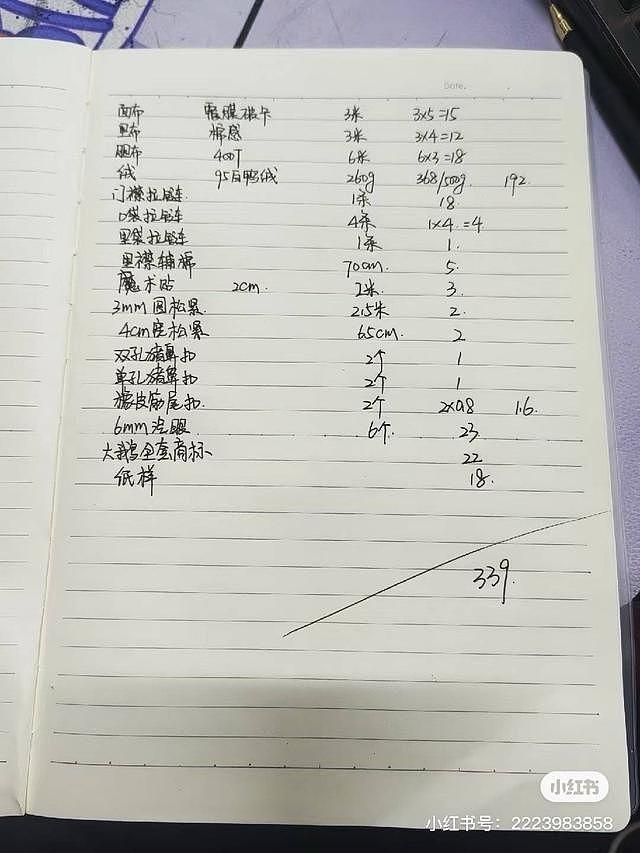 Date.
面布 覆膜橡卡 3米 3×5=15
里布 棉感 3米 3×4=12
胆布 400T 6米 6×3=18
绒 95白鸭绒 260g 368/500g 192
门襟拉链 1条 18
口袋拉链 4条 1×4=4
里袋拉链 1条 1.
里襟辅棉 70cm. 5.
魔术贴 2cm. 2米 3.
3mm圆松紧. 2.5米 2.
4cm宽松紧 65cm. 2
双孔猪鼻扣 2个 1
单孔猪鼻扣 2个 1
橡皮筋尾扣. 2个 2×0.8 1.6.
6mm气眼 6个. 23
大鹅全套商标 22
纸样 18.
339.
小红书
小红书号：2223983858